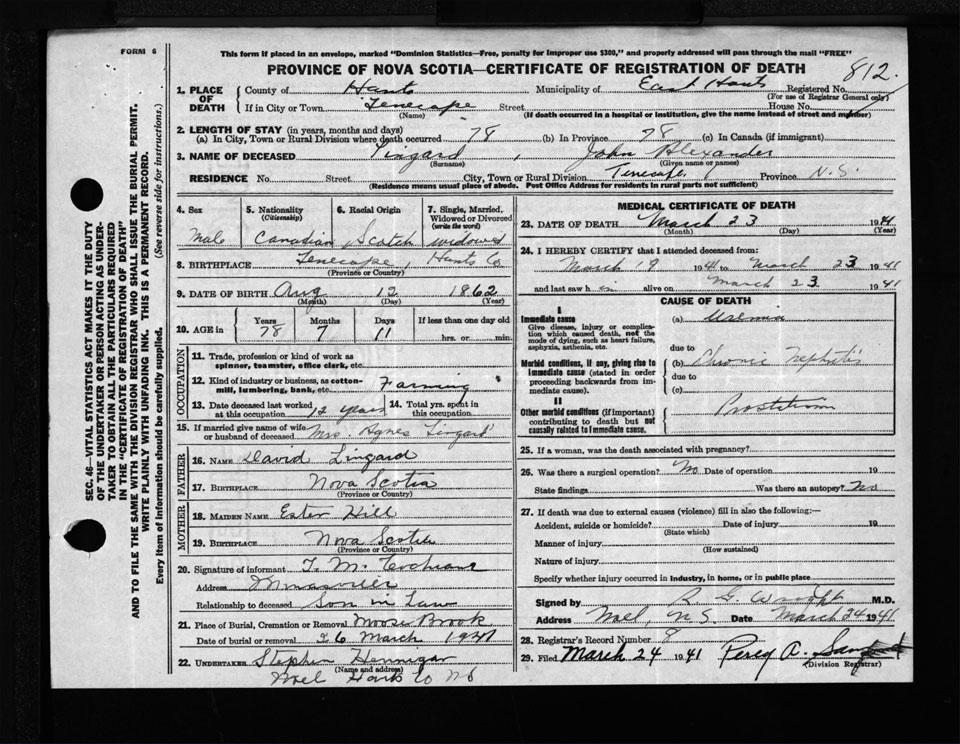 FORM 6
This form if placed in an envelope, marked "Dominion Statistics—Free, penalty for improper use $300," and properly addressed will pass through the mail "FREE"
PROVINCE OF NOVA SCOTIA—CERTIFICATE OF REGISTRATION OF DEATH
812.
1. PLACE OF DEATH
County of Hants Municipality of East Hants Registered No.
(For use of Registrar General only)
If in City or Town Tenecape Street House No.
(Name) (If death occurred in a hospital or institution, give the name instead of street and number)
2. LENGTH OF STAY (in years, months and days)
(a) In City, Town or Rural Division where death occurred 78 (b) In Province 78 (c) In Canada (if immigrant)
3. NAME OF DECEASED Lingard, John Alexander
(Surname) (Given name or names)
RESIDENCE No. Street City, Town or Rural Division Tenecape Province N.S.
(Residence means usual place of abode. Post Office Address for residents in rural parts not sufficient)
4. Sex Male
5. Nationality (Citizenship) Canadian
6. Racial Origin Scotch
7. Single, Married, Widowed or Divorced (write the word) widowed
8. BIRTHPLACE Tenecape, Hants Co
(Province or Country)
9. DATE OF BIRTH Aug 12 1862
(Month) (Day) (Year)
10. AGE in Years 78 Months 7 Days 11 If less than one day old hrs. or min.
OCCUPATION
11. Trade, profession or kind of work as spinner, teamster, office clerk, etc.
12. Kind of industry or business, as cotton-mill, lumbering, bank, etc. Farming
13. Date deceased last worked at this occupation 12 years 14. Total yrs. spent in this occupation
15. If married give name of wife or husband of deceased Mrs. Agnes Lingard
FATHER
16. NAME David Lingard
17. BIRTHPLACE Nova Scotia
(Province or Country)
MOTHER
18. MAIDEN NAME Ester Hill
19. BIRTHPLACE Nova Scotia
(Province or Country)
20. Signature of informant T. M. Cochrane
Address Minasville
Relationship to deceased Son in Law
21. Place of Burial, Cremation or Removal Moose Brook
Date of burial or removal 26 March 1941
22. UNDERTAKER Stephen Hennigar
(Name and address)
Noel Hants Co NS
MEDICAL CERTIFICATE OF DEATH
23. DATE OF DEATH March 23 1941
(Month) (Day) (Year)
24. I HEREBY CERTIFY that I attended deceased from:
March 19 1941 to March 23 1941
and last saw h im alive on March 23 1941
CAUSE OF DEATH
I
Immediate cause
Give disease, injury or complication which caused death, not the mode of dying, such as heart failure, asphyxia, asthenia, etc.
(a) Uremia
due to
Morbid conditions, if any, giving rise to immediate cause (stated in order proceeding backwards from immediate cause).
(b) Chronic Nephritis
due to
(c)
II
Other morbid conditions (if important) contributing to death but not causally related to immediate cause.
25. If a woman, was the death associated with pregnancy?
26. Was there a surgical operation? No Date of operation 19
State findings Was there an autopsy? No
27. If death was due to external causes (violence) fill in also the following:—
Accident, suicide or homicide? Date of injury 19
(State which)
Manner of injury
(How sustained)
Nature of injury
Specify whether injury occurred in industry, in home, or in public place
Signed by R G. Wright M.D.
Address Noel, N.S. Date March 24 1941
28. Registrar's Record Number 8
29. Filed March 24 1941 Percy A.
(Division Registrar)
SEC. 46—VITAL STATISTICS ACT MAKES IT THE DUTY
OF THE UNDERTAKER OR PERSON ACTING AS UNDER-
TAKER TO OBTAIN ALL THE PARTICULARS REQUIRED
IN THE "CERTIFICATE OF REGISTRATION OF DEATH"
AND TO FILE THE SAME WITH THE DIVISION REGISTRAR WHO SHALL ISSUE THE BURIAL PERMIT.
WRITE PLAINLY WITH UNFADING INK. THIS IS A PERMANENT RECORD.
Every item of information should be carefully supplied. (See reverse side for instructions.)